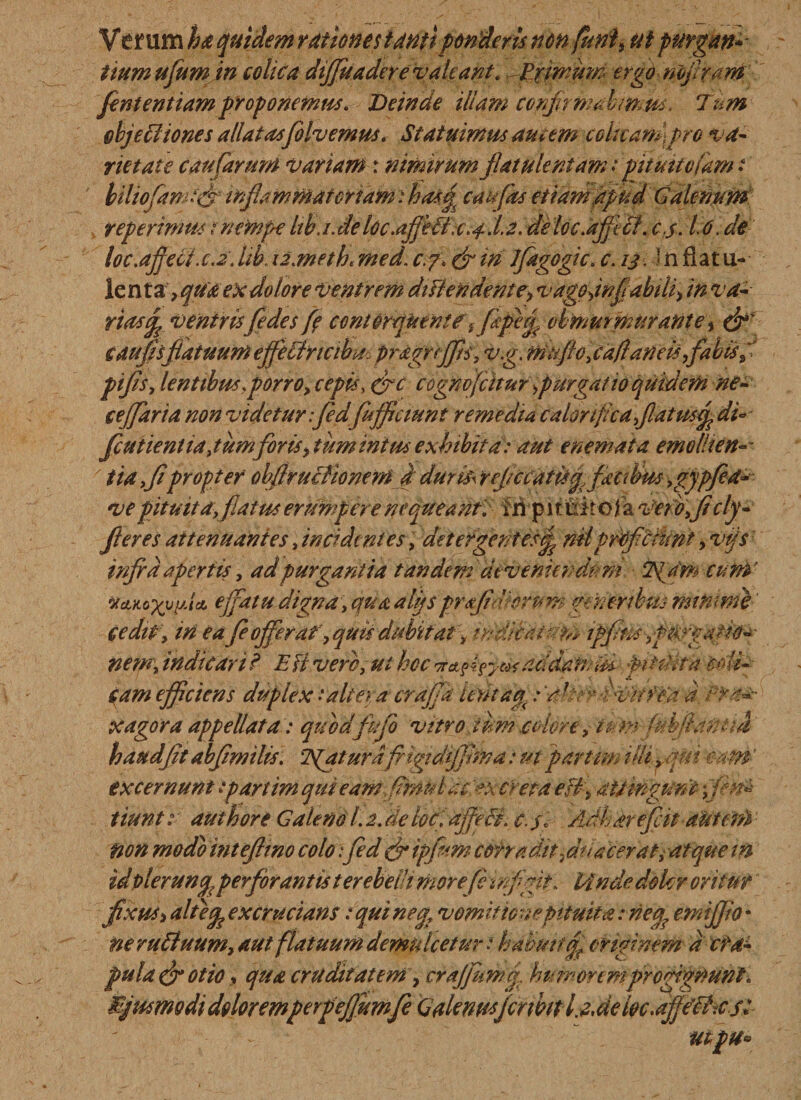 Verum hæ quidem rationes tanti ponderis non sunt, ut purgan-
tium usum in colica dissuadere valeant. Primum ergo nostram
sententiam proponemus. Deinde illam confirmabimus. Tum
objectiones allatas solvemus. Statuimus autem colicam pro va-
rietate causarum variam: nimirum flatulentam: pituitosam:
biliosam: & inflammatoriam: hasq; causas etiam apud Galenum
reperimus: nempe lib.1.de loc.affect.c.4.l.2. de loc.affect.c.5. l.6. de
loc.affect.c.2. lib. 12.meth. med. c.7. & in Isagogic. c. 13. In flatu-
lenta, quæ ex dolore ventrem distendente, vago, instabili, in va-
riasq; ventris sedes se contorquente, sæpeq; obmurmurante, &
causis flatuum effectricibus prægressis, v.g. musto, castaneis, fabis,
pisis, lentibus, porro, cepis, &c cognoscitur, purgatio quidem ne-
cessaria non videtur: sed sufficiunt remedia calorifica, flatusq; di-
scutientia, tum foris, tum intus exhibita: aut enemata emollien-
tia, si propter obstructionem à duris resiccatisq; fæcibus, gypseâ-
ve pituita, flatus erumpere nequeant. In pituitosa vero, si cly-
steres attenuantes, incidentes, detergentesq; nil proficiunt, vijs
infrà apertis, ad purgantia tandem deveniendum. Nam cum
κακοχυμία effatu digna, quæ alijs præsidiorum generibus minimè
cedit, in ea se offerat, quis dubitat, indicatum ipsius, purgatio-
nem, indicari? Est vero, ut hoc addamus pituita coli-
cam efficiens duplex: altera crassa lentaq;: altera vitrea à Pra-
xagora appellata: quòd fuso vitro tum colore, tum substantiâ
haud sit absimilis. Naturâ frigidissima: ut partim illi, qui eam
excernunt: partim qui eam simul ac excreta est, attingunt, sen-
tiunt: authore Galeno l.2.de loc. affect. c.5. Adhærescit autem
non modò intestino colo: sed & ipsum corradit, duacerat, atque in
id plerunq; perforantis terebelli more se infigit. Unde dolor oritur
fixus, altèq; excrucians: qui neq; vomitione pituitæ: neq; emissio-
ne ructuum, aut flatuum demulcetur: habuitq; originem à cra-
pula & otio, quæ cruditatem, crassumq; humorem progignunt.
Ejusmodi dolorem perpessum se Galenus scribit l.2.de loc.affect.c.5:
ut pu-